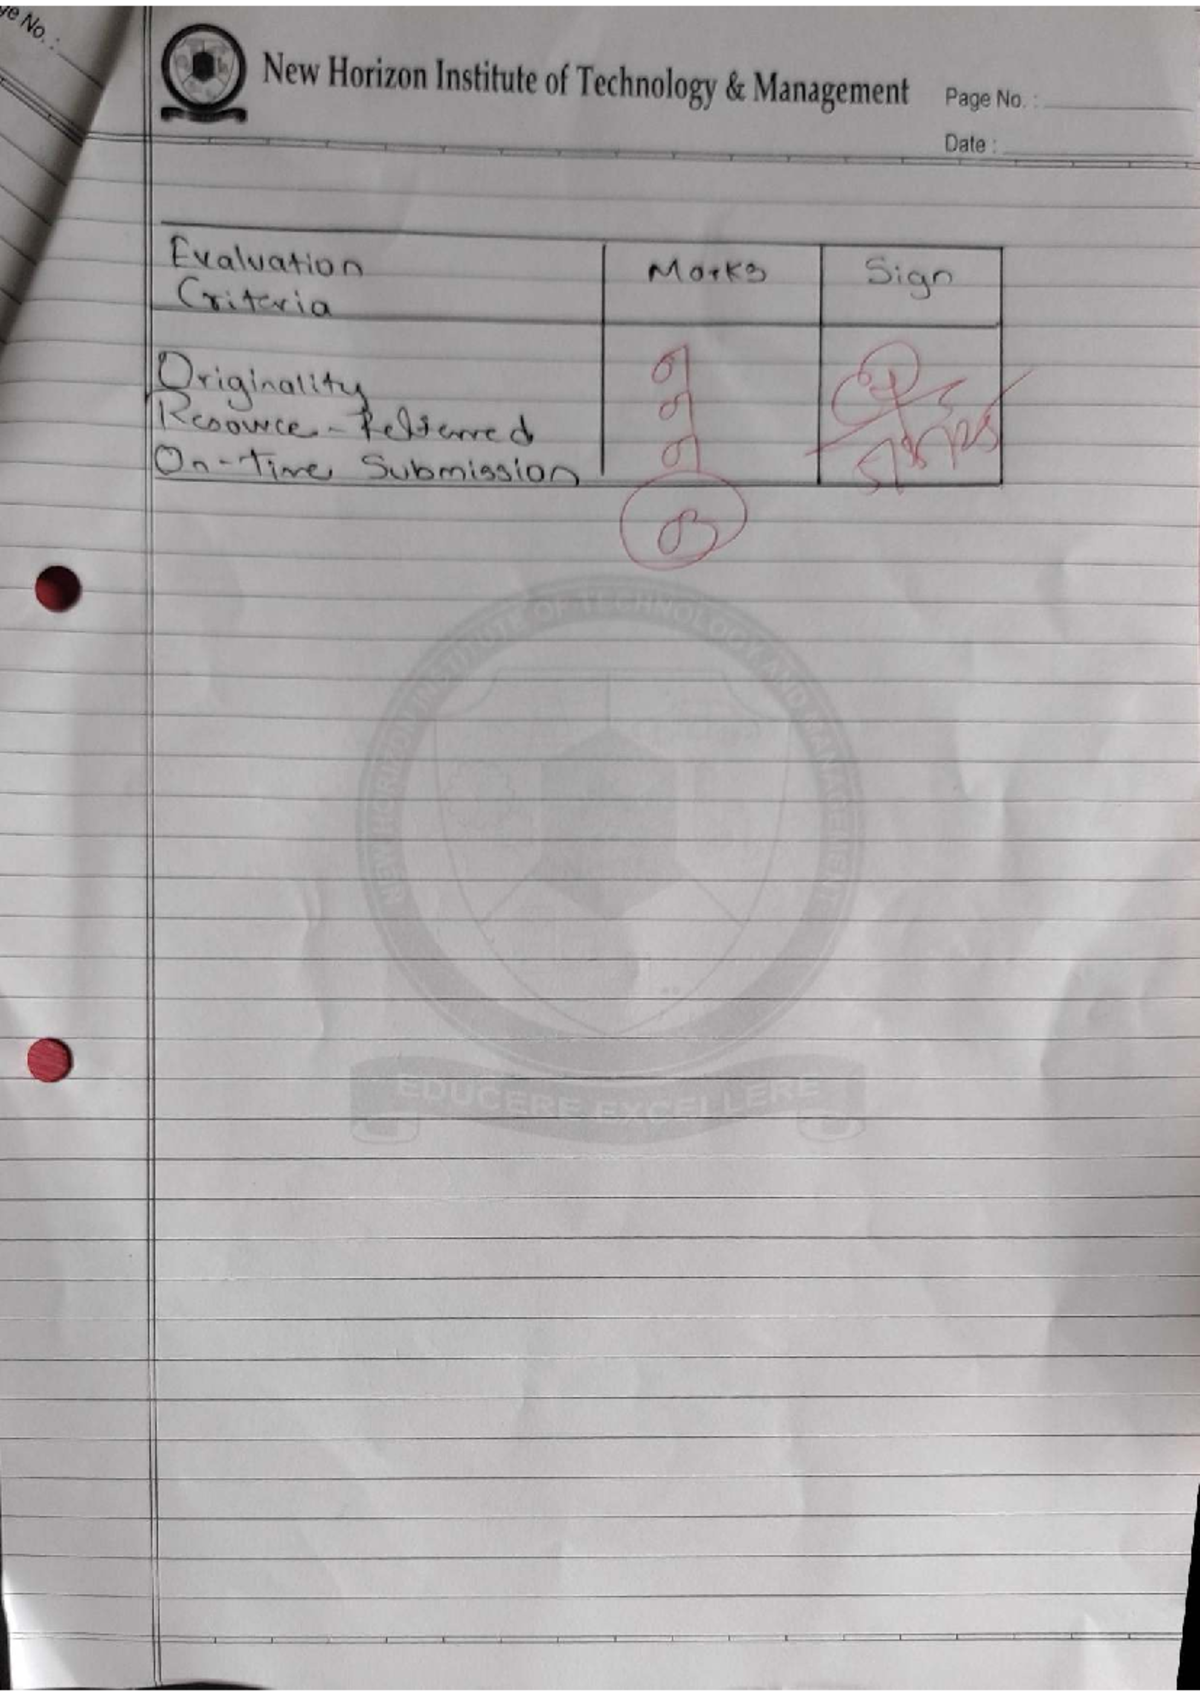 ge No. :
New Horizon Institute of Technology & Management
Page No. :
Date :
Evaluation Criteria
Marks
Sign
Originality
Resource-Referred
On-Time Submission
NEW HORIZON INSTITUTE OF TECHNOLOGY AND MANAGEMENT
EDUCERE EXCELLERE